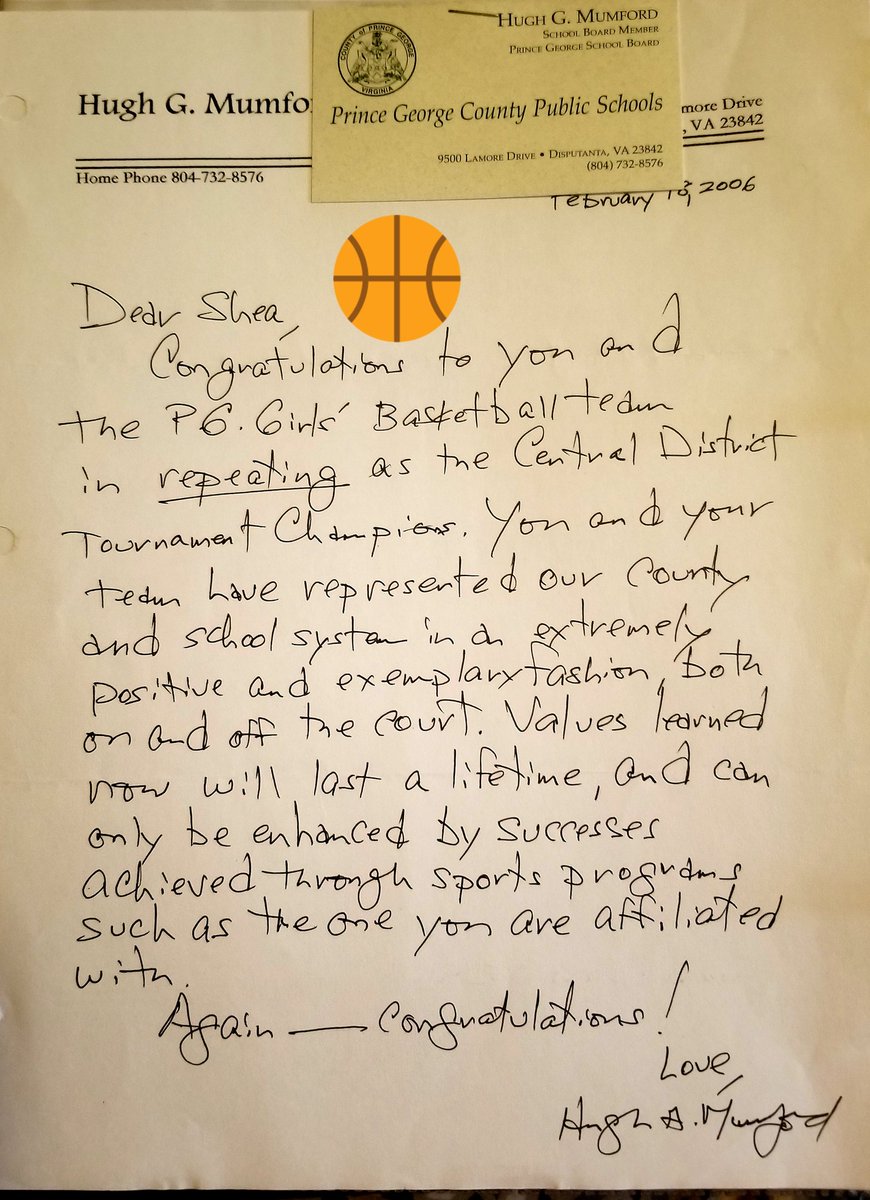 HUGH G. MUMFORD
SCHOOL BOARD MEMBER
PRINCE GEORGE SCHOOL BOARD
COUNTY of PRINCE GEORGE
VIRGINIA
Prince George County Public Schools
9500 LAMORE DRIVE • DISPUTANTA, VA 23842
(804) 732-8576
Hugh G. Mumfo
more Drive
, VA 23842
Home Phone 804-732-8576
February 2006
Dear Shea,
Congratulations to you and
the P G. Girls' Basketball team
in repeating as the Central District
Tournament Champions. You and your
team have represented our county
and school system in an extremely
positive and exemplary fashion, both
on and off the court. Values learned
now will last a lifetime, and can
only be enhanced by successes
achieved through sports programs
such as the one you are affiliated
with.
Again — Congratulations!
Love,
Hugh G. Mumford